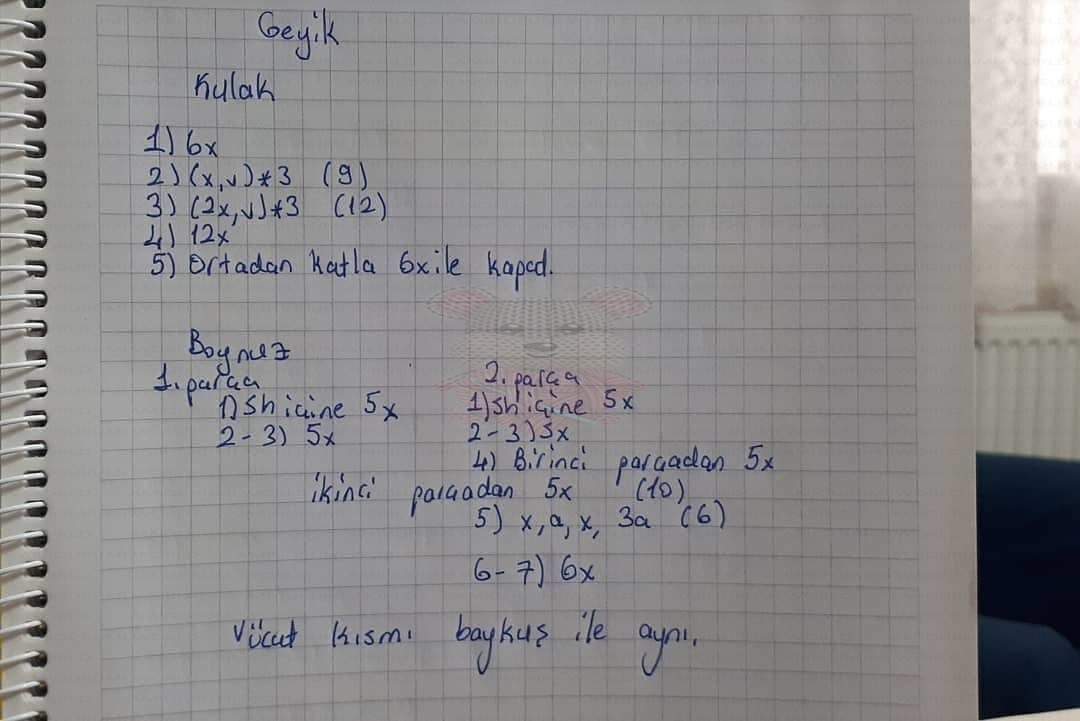 Geyik
Kulak
1) 6x
2) (x,v)*3 (9)
3) (2x,v)*3 (12)
4) 12x
5) Ortadan katla 6x ile kapad.
Boynuz
1. parça
1) Sh içine 5x
2-3) 5x
2. parça
1) Sh içine 5x
2-3) 5x
4) Birinci parçadan 5x
ikinci parçadan 5x (10)
5) x, a, x, 3a (6)
6-7) 6x
Vücut kısmı baykuş ile aynı.